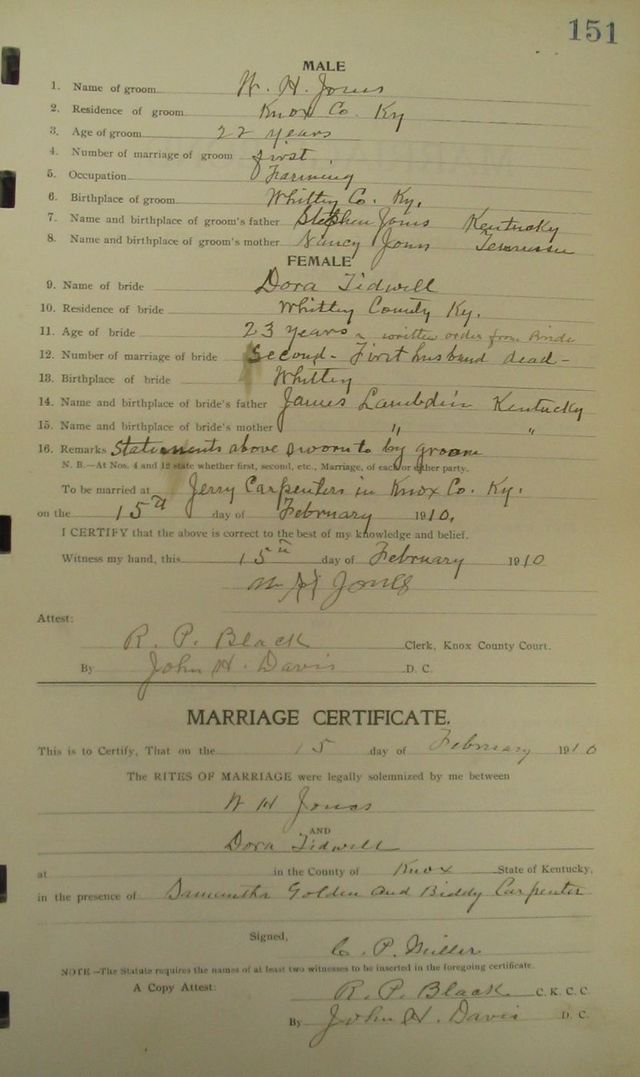 151
MALE
1. Name of groom W. H. Jones
2. Residence of groom Knox Co. Ky
3. Age of groom 22 years
4. Number of marriage of groom first
5. Occupation Farming
6. Birthplace of groom Whitley Co. Ky.
7. Name and birthplace of groom's father Stephen Jones Kentucky
8. Name and birthplace of groom's mother Nancy Jones Tennessee
FEMALE
9. Name of bride Dora Tidwell
10. Residence of bride Whitley County Ky.
11. Age of bride 23 years written order from Bride
12. Number of marriage of bride Second - First husband dead -
13. Birthplace of bride Whitley
14. Name and birthplace of bride's father James Lambdin Kentucky
15. Name and birthplace of bride's mother " "
16. Remarks Statements above sworn to by groom
N. B.—At Nos. 4 and 12 state whether first, second, etc., Marriage, of each or either party.
To be married at Jerry Carpenters in Knox Co. Ky.
on the 15th day of February 1910.
I CERTIFY that the above is correct to the best of my knowledge and belief.
Witness my hand, this 15th day of February 1910
W H Jones
Attest:
R. P. Black Clerk, Knox County Court.
By John H. Davis D. C.
MARRIAGE CERTIFICATE.
This is to Certify, That on the 15 day of February 1910
The RITES OF MARRIAGE were legally solemnized by me between
W H Jones
AND
Dora Tidwell
at in the County of Knox State of Kentucky,
in the presence of Samantha Golden and Biddy Carpenter
Signed,
C. P. Miller
NOTE—The Statute requires the names of at least two witnesses to be inserted in the foregoing certificate.
A Copy Attest: R. P. Black C. K. C. C.
By John H. Davis D. C.